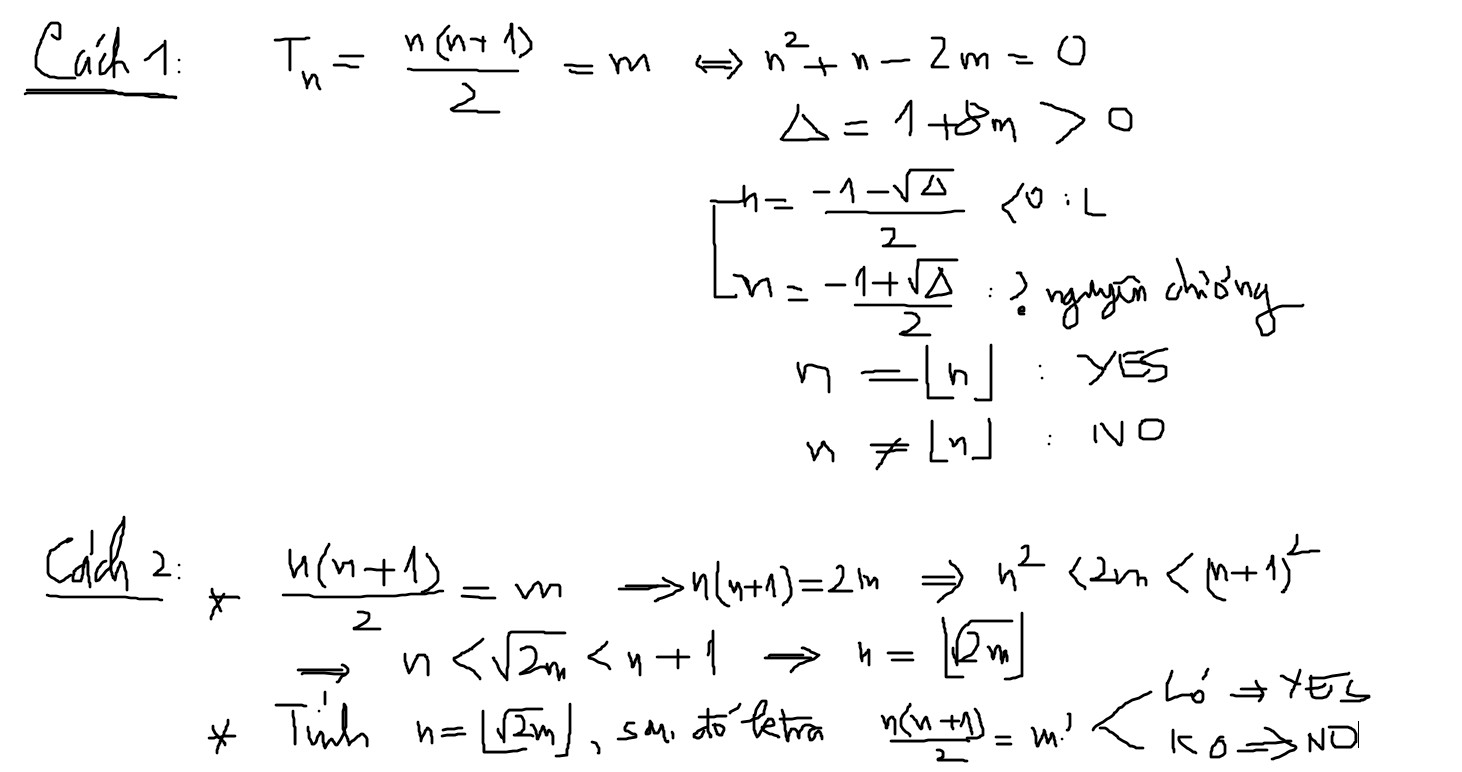 Cách 1: Tₙ = n(n+1)/2 = m ⇔ n² + n - 2m = 0
Δ = 1 + 8m > 0
n = (-1 - √Δ)/2 < 0 : L
n = (-1 + √Δ)/2 : ? nguyên dương
n = ⌊n⌋ : YES
n ≠ ⌊n⌋ : NO
Cách 2: * n(n+1)/2 = m → n(n+1) = 2m ⇒ n² < 2m < (n+1)²
→ n < √2m < n + 1 → n = ⌊√2m⌋
* Tính n = ⌊√2m⌋, sau đó ktra n(n+1)/2 = m?
Có ⇒ YES
KO ⇒ NO